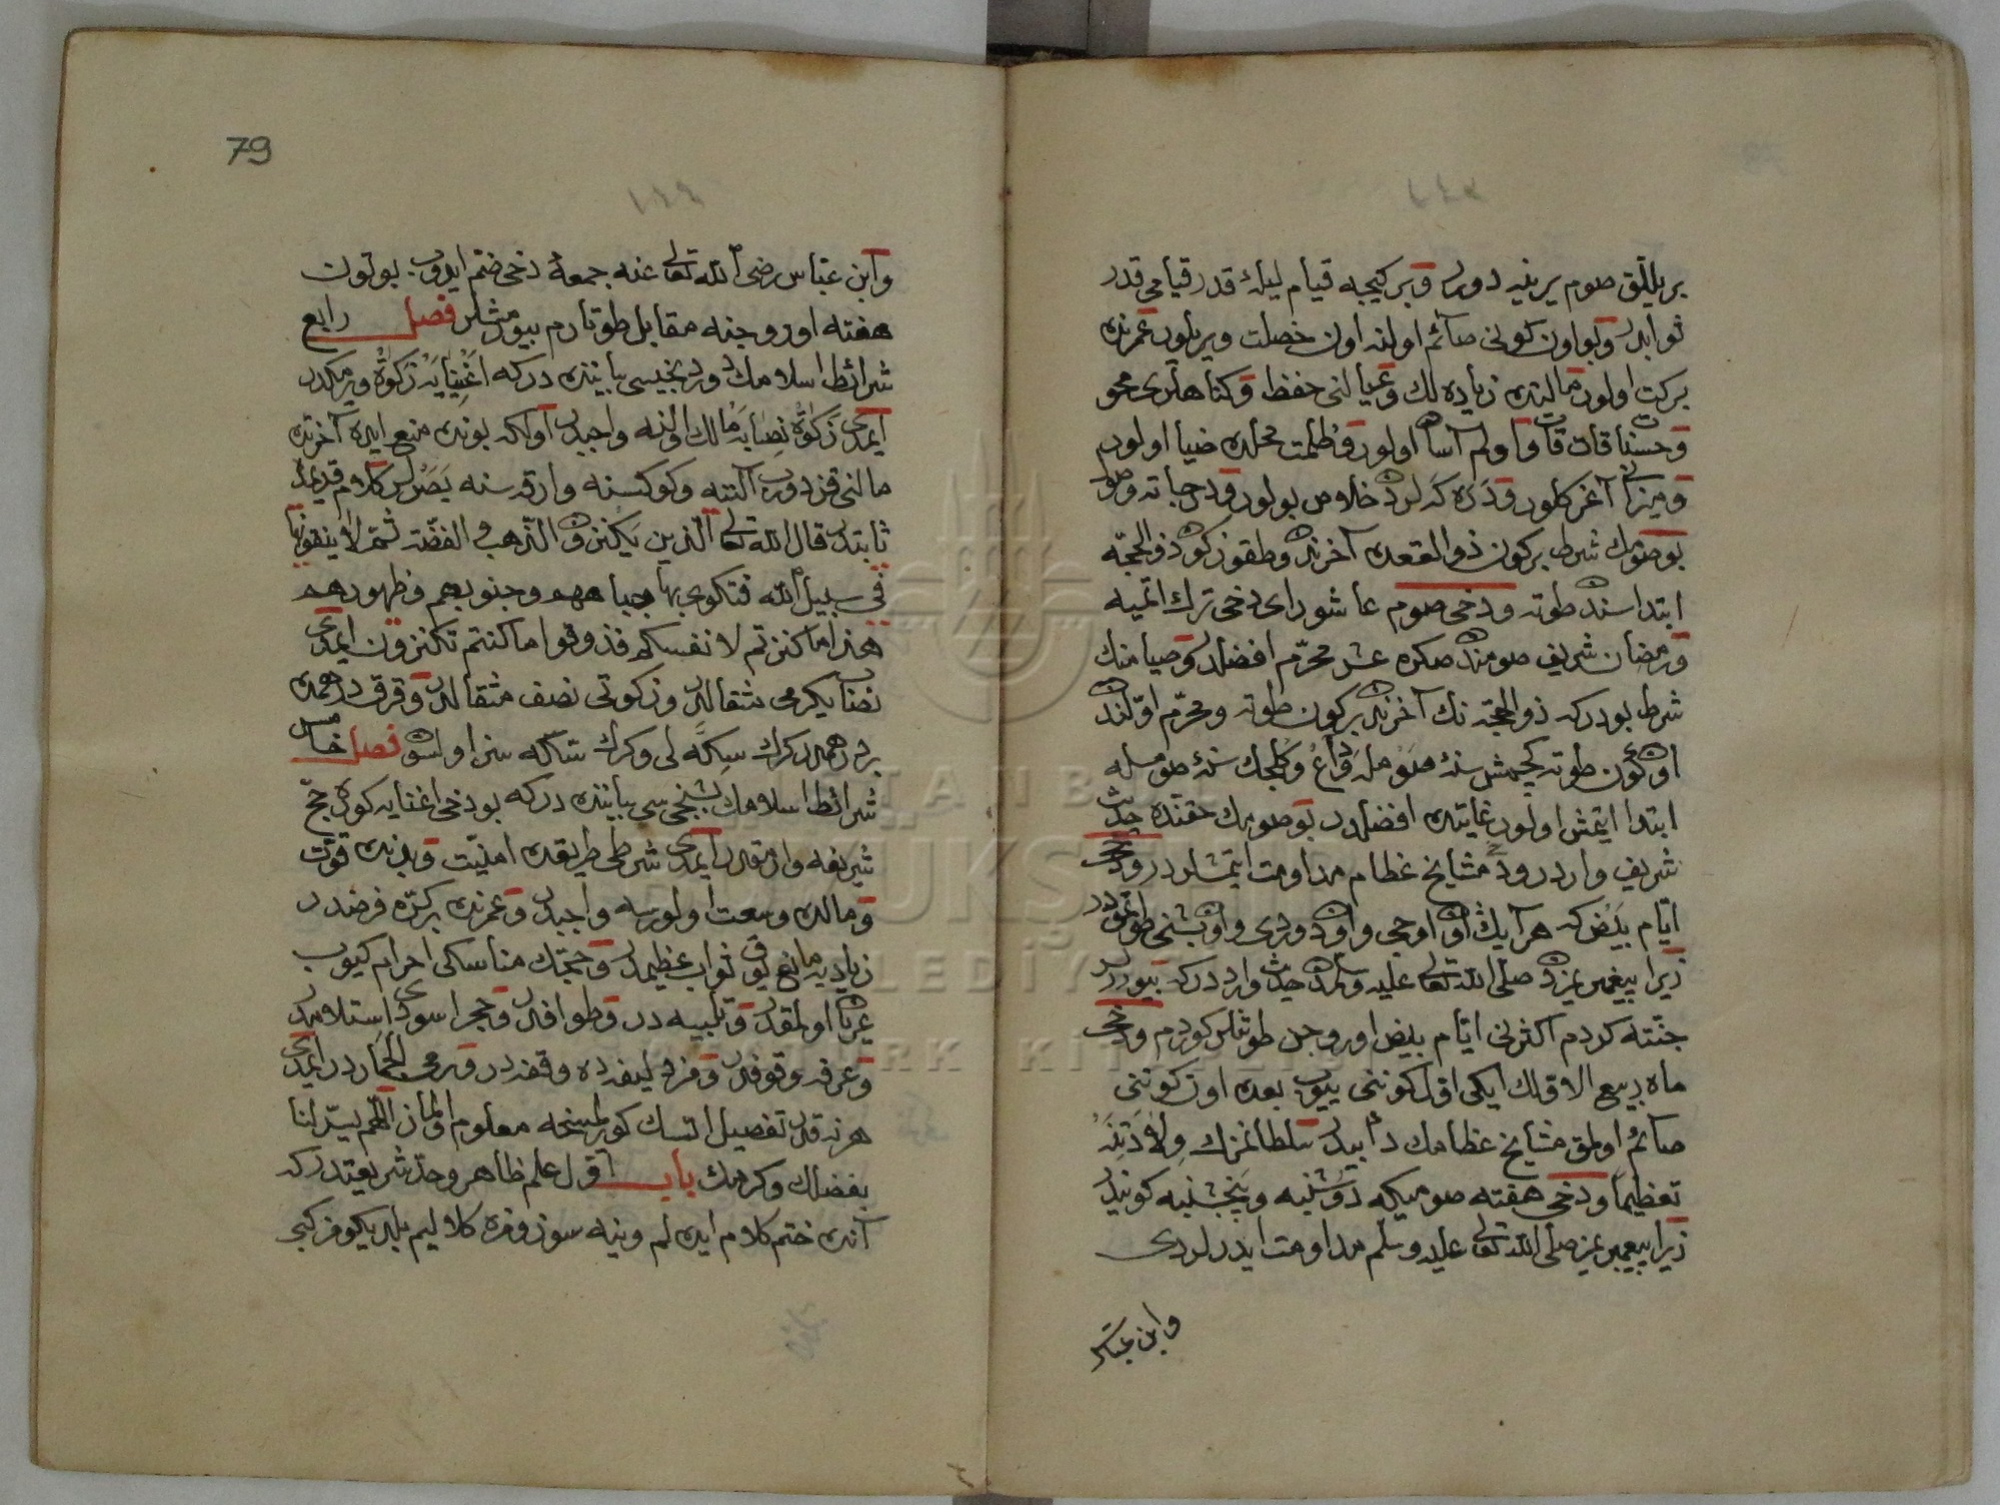 بر ييللق صوم يرينه دورر وبر كيجه قيام ليلۀ قدر قيامى قدر
ثوابدر وبو اون كونى صائم اولنه اون خصلت ويريلور عمرنده
بركت اولور مالنده زياده لك وعيالنى حفظ وكناهلرى محو
وحسناة قات قات واولم آسان اولور وظلمت محلده ضيا اولور
وميزانى آغر كلور ودركه لردن خلاص بولور ودرجاته
بو صومك شرط بركون ذوالقعده آخرنده وطقوز كون ذوالحجه
ابتداسنده طوته ودخى صوم عاشوراى دخى ترك اتميه
ورمضان شريف صومندن صكره عشر محرم افضلدر وصيامنك
شرط بودركه ذوالحجه نك آخرنده بركون طوته ومحرم اولنده
اون كون طوته كچمش سنۀ صومله وداع وكلجك سنۀ صومله
ابتدا ايتمش اولور غايتده افضلدر بو صومك حقنده حديث
شريف وارددر مشايخ عظام مداومت ايتمشلردر ودخى
ايام بيض كه هر آيك اون اوچى واون دردى واون بشنجى طوتمقدر
زيرا پيغمبريمزدن صلى الله تعالى عليه وسلمدن حديث وارددركه بيوررلر
جنته كردم اكثرنى ايام بيض اوروجن طوتنلر كوردم ودخى
ماه ربيع الاولك ايكى اول كوننى ييوب بعده اون كوننى
صائم اولمق مشايخ عظامك دأبيدر سلطانمزك ولادتنه
تعظيما ودخى هفته صوميكه دوشنبه وپنجشنبه كونيدر
زيرا پيغمبريمز صلى الله تعالى عليه وسلم مداومت ايدرلردى
وابن عباس
79
وابن عباس رضى الله تعالى عنه جمعۀ دخى ضم ايدوب بوتون
هفته اوروجنه مقابل طوتارم بيورمشلر فصل رابع
شرائط اسلامك دردنجيسى بياننده دركه اغنيايه زكوة ويرمكدر
ايمدى زكوة نصابه مالك اولنه واجبدر آواكه بوندن منع ايده آخرتده
مالنى قزدروب آلننه وكوكسنه وارقه سنه بصرلر كلام قديمده
ثابتدر قال الله تعالى الذين يكنزون الذهب والفضة ثم لا ينفقونها
فى سبيل الله فتكوى بها جباههم وجنوبهم وظهورهم
هذا ما كنزتم لانفسكم فذوقوا ما كنتم تكنزون ايمدى
نصاب يكرمى مثقالدر وزكوتى نصف مثقالدر وقرق درهمده
بر درهمدر كرك سكه لى وكرك سكه سز اولسون فصل خامس
شرائط اسلامك بشنجى سى بياننده دركه بو دخى اغنيايه كوره حج
شريفه وارمقدر ايمدى شرطى طريقده امنيت وبدنده قوت
ومالده وسعت اولورسه واجبدر وعمرنده بركره فرضدر
زياديه مانع يوق ثواب عظيمدر وحجك مناسكى احرام كيوب
عريان اولمقدر وتلبيه در وطوافدر وحجر اسودى استلامدر
وعرفه وقوفدر ومزدليفه ده وقفه در ورمى الجماردر ايمدى
هر نه قدر تفصيل اتسك كورلمينجه معلوم اولماز اللهم يسر لنا
بفضلك وكرمك باب اول علم ظاهر وحد شريعتدر كه
آنده ختم كلام ايده لم وينه سوزومزه كلاليم بلديكومزكبى